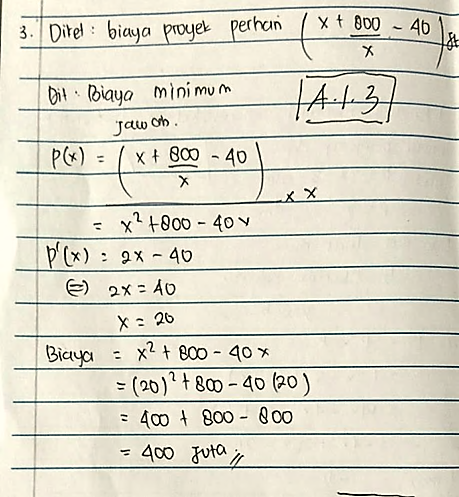 3. Diket : biaya proyek perhari (x + 800/x - 40) jt
Dit : Biaya minimum
|A.1.3|
jawab.
P(x) = (x + 800/x - 40) × x
= x² + 800 - 40x
P'(x) = 2x - 40
⇔ 2x = 40
x = 20
Biaya = x² + 800 - 40x
= (20)² + 800 - 40 (20)
= 400 + 800 - 800
= 400 juta //